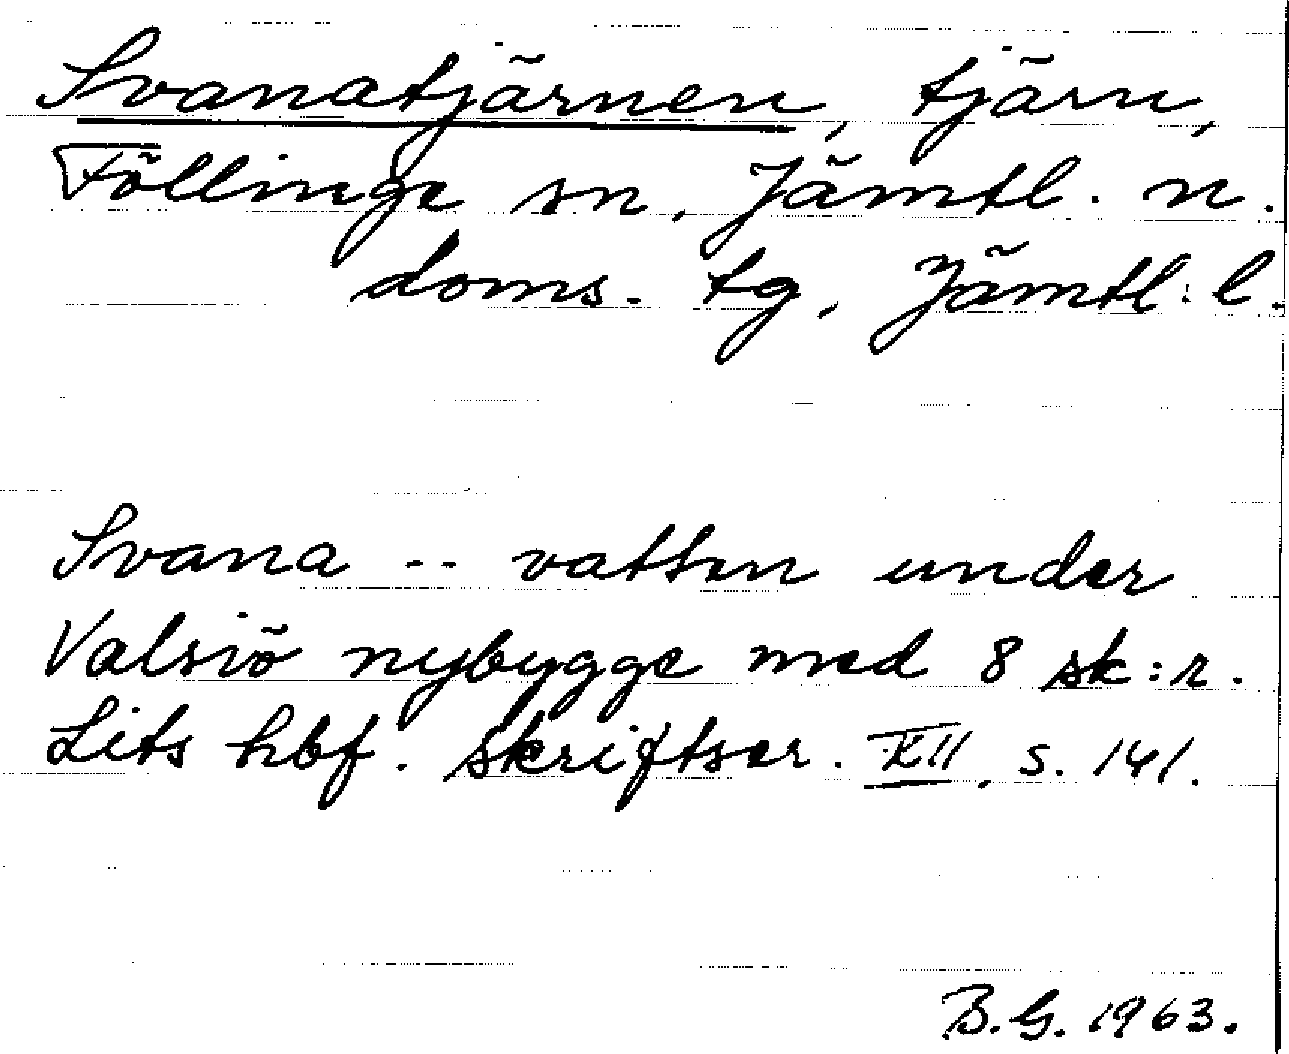 Svanatjärnen, tjärn,
Föllinge sn, Jämtl. n.
doms. tg, Jämtl. l.
Svana -- vatten under
Valsiö nybygge med 8 sk:r.
Lits hbf. skriftser. XII, s. 141.
B.G. 1963.